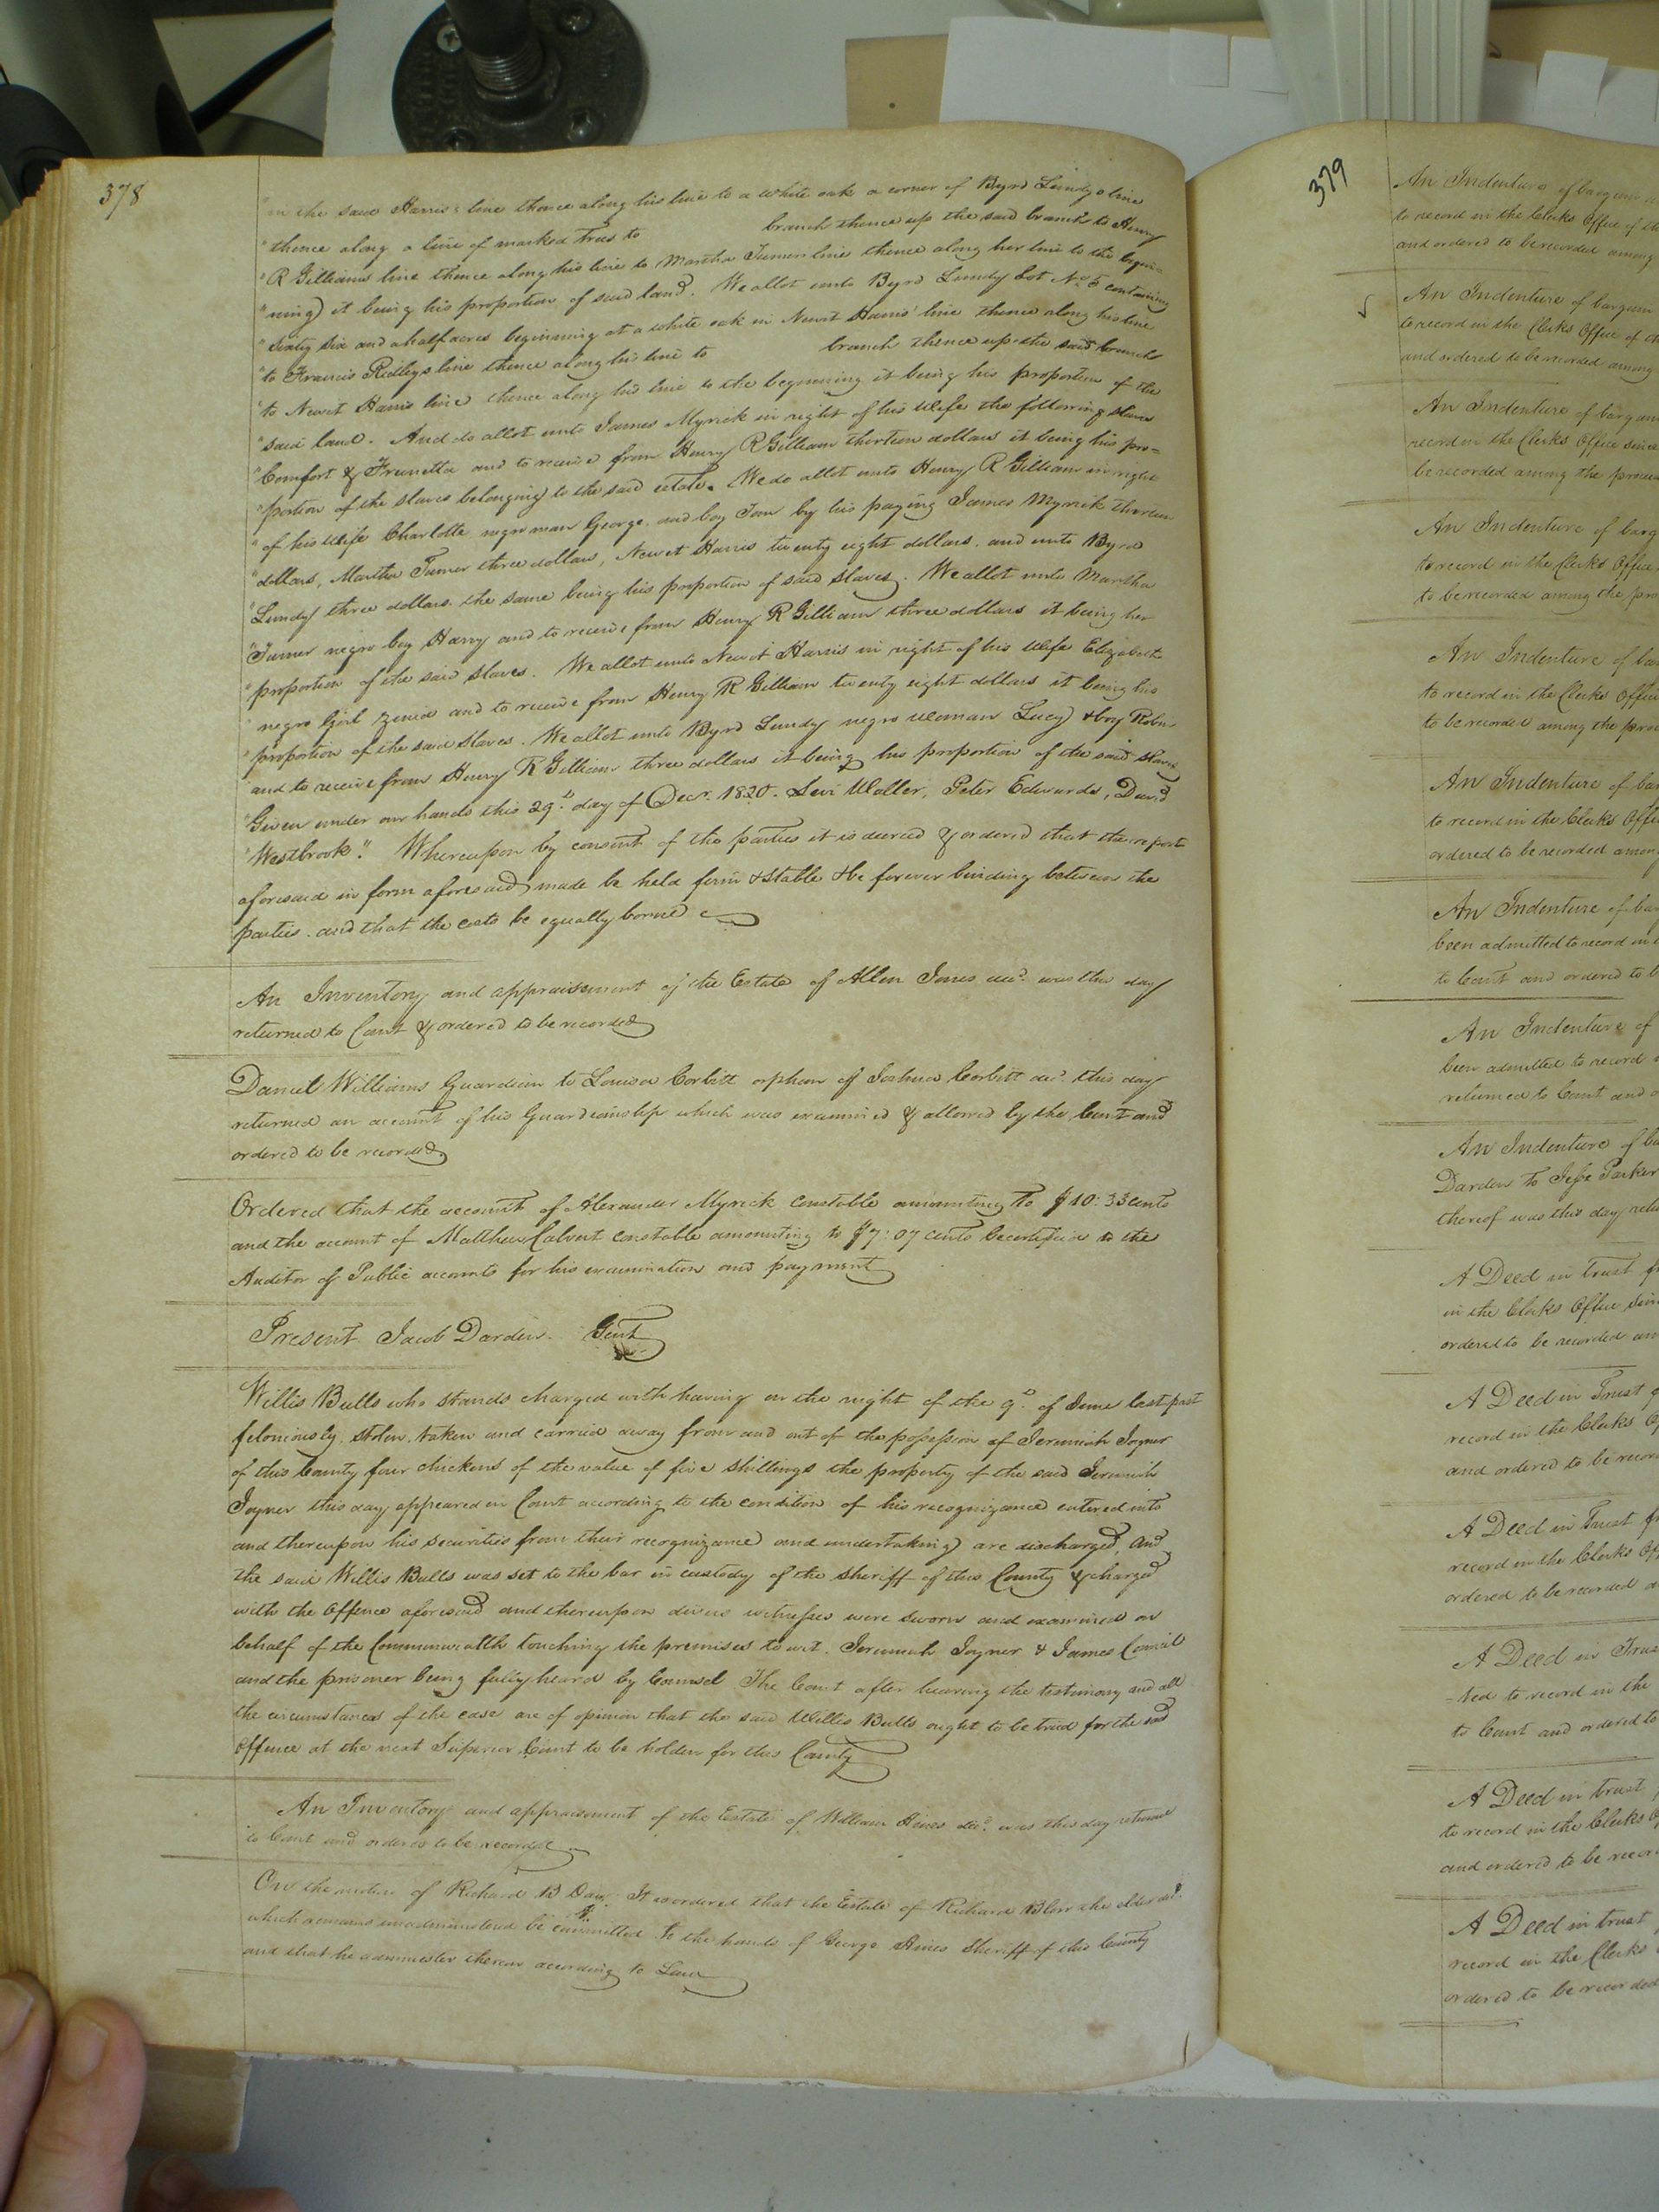 378
"in the said Harris's line thence along his line to a white oak a corner of Byrd Lundy's line
"thence along a line of marked trees to branch thence up the said branch to Henry
"R Gilliams line thence along his line to Martha Turner line thence along her line to the begin-
"ning) it being his proportion of said land. We allot unto Byrd Lundy Lot No. 5 containing
"Sixty six and a half acres beginning at a white oak in Newit Harris' line thence along his line
"to Francis Ridleys line thence along his line to branch thence up the said branch
"to Newit Harris line thence along his line to the beginning it being his proportion of the
"said land. And do allot unto James Myrick in right of his Wife the following slaves
"Comfort & Frunetta and to receive from Henry R Gilliam thirteen dollars it being his pro-
"portion of the slaves belonging to the said estate. We do allot unto Henry R Gilliam in right
"of his Wife Charlotte negro man George, and boy Tom by his paying James Myrick thirteen
"dollars, Martha Turner three dollars, Newit Harris twenty eight dollars, and unto Byrd
"Lundy three dollars the same being his proportion of said slaves. We allot unto Martha
"Turner negro boy Harry and to receive from Henry R Gilliam three dollars it being her
"proportion of the said slaves. We allot unto Newit Harris in right of his Wife Elizabeth
"negro Girl and to receive from Henry R Gilliam twenty eight dollars it being his
"proportion of the said slaves. We allot unto Byrd Lundy negro woman Lucy & boy Robin
"and to receive from Henry R Gilliam three dollars it being his proportion of the said slaves
"Given under our hands this 29th day of Decr. 1820. Levi Waller, Peter Edwards, David
"Westbrook." Whereupon by consent of the parties it is decreed & ordered that the report
aforesaid in form aforesaid made be held firm & stable & be forever binding between the
parties. and that the costs be equally borne
An Inventory and appraisement of the Estate of Allen Jones decd. was this day
returned to Court & ordered to be recorded
Daniel Williams Guardian to Louisa Corbitt orphan of Joshua Corbitt decd. this day
returned an account of his Guardianship which was examined & allowed by the Court and
ordered to be recorded
Ordered that the account of Alexander Myrick Constable amounting to $10:33 cents
and the account of Matthew Calvert constable amounting to $7:07 cents be certified to the
Auditor of Public accounts for his examination and payment
Present Jacob Darden. Gent
Willis Bulls who stands charged with having on the night of the 9th of June last past
feloniously, stolen, taken and carried away from and out of the possession of Jeremiah Joyner
of this County four chickens of the value of five shillings the property of the said Jeremiah
Joyner this day appeared in Court according to the condition of his recognizance entered into
and thereupon his securities from their recognizance and undertaking are discharged, And
the said Willis Bulls was set to the bar in custody of the sheriff of this County & charged
with the Offence aforesaid and thereupon divers witnesses were sworn and examined on
behalf of the Commonwealth touching the premises to wit. Jeremiah Joyner & James Council
and the prisoner being fully heard by Counsel The Court after hearing the testimony and all
the circumstances of the case are of opinion that the said Willis Bulls ought to be tried for the said
Offence at the next Superior Court to be holden for this County
An Inventory and appraisement of the Estate of William Hines decd. was this day returned
to Court and ordered to be recorded
On the motion of Richard B Day. It is ordered that the Estate of Richard Blow the elder decd.
which remains unadministered be committed to the hands of George Hines Sheriff of this County
and that he administer thereon according to Law
379
An Indenture of bargain
to record in the Clerks Office of the
and ordered to be recorded among
An Indenture of bargain
to record in the Clerks Office of the
and ordered to be recorded among
An Indenture of bargain
record in the Clerks Office since
be recorded among the
An Indenture of barg
to record in the Clerks Office
to be recorded among the pro
An Indenture of bar
to record in the Clerks Office
to be recorded among the pro
An Indenture of bar
to record in the Clerks Offi
ordered to be recorded among
An Indenture of bar
been admitted to record in
to Court and ordered to b
An Indenture of
been admitted to record
returned to Court and o
An Indenture of ba
Darden to Jesse Parker
thereof was this day retu
A Deed in trust fr
in the Clerks Office Sin
ordered to be recorded am
A Deed in Trust f
record in the Clerks Of
and ordered to be recor
A Deed in Trust fr
record in the Clerks Off
ordered to be recorded a
A Deed in Trus
-ted to record in the
to Court and ordered to
A Deed in trust
to record in the Clerks O
and ordered to be recor
A Deed in trust
record in the Clerks
ordered to be recorded